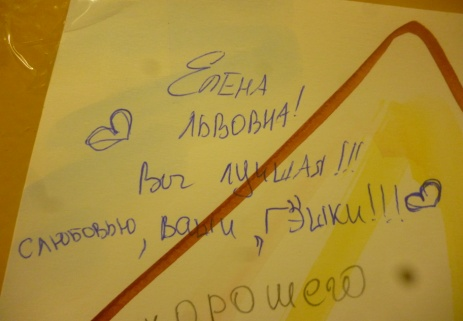 Елена
Львовна!
Вы лучшая!!!
С любовью, ваши „Гэшки!!!
хорошего